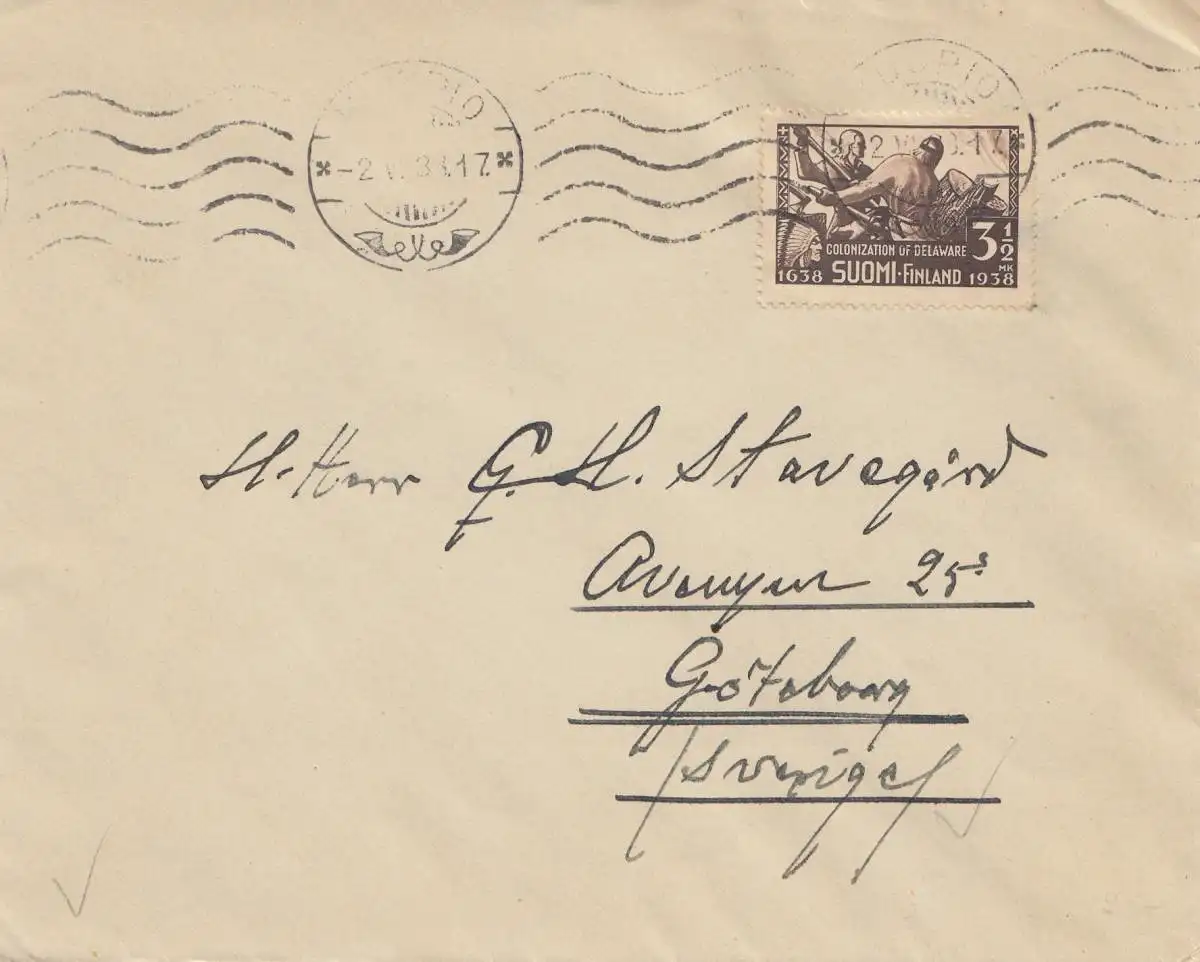 -2 V 38.17
2 V 38.17
COLONIZATION OF DELAWARE
3 1/2 MK
1638 SUOMI·FINLAND 1938
H. Herr G. H. Stavegård
Avenyen 25ˢ
Göteborg
/Sverige/